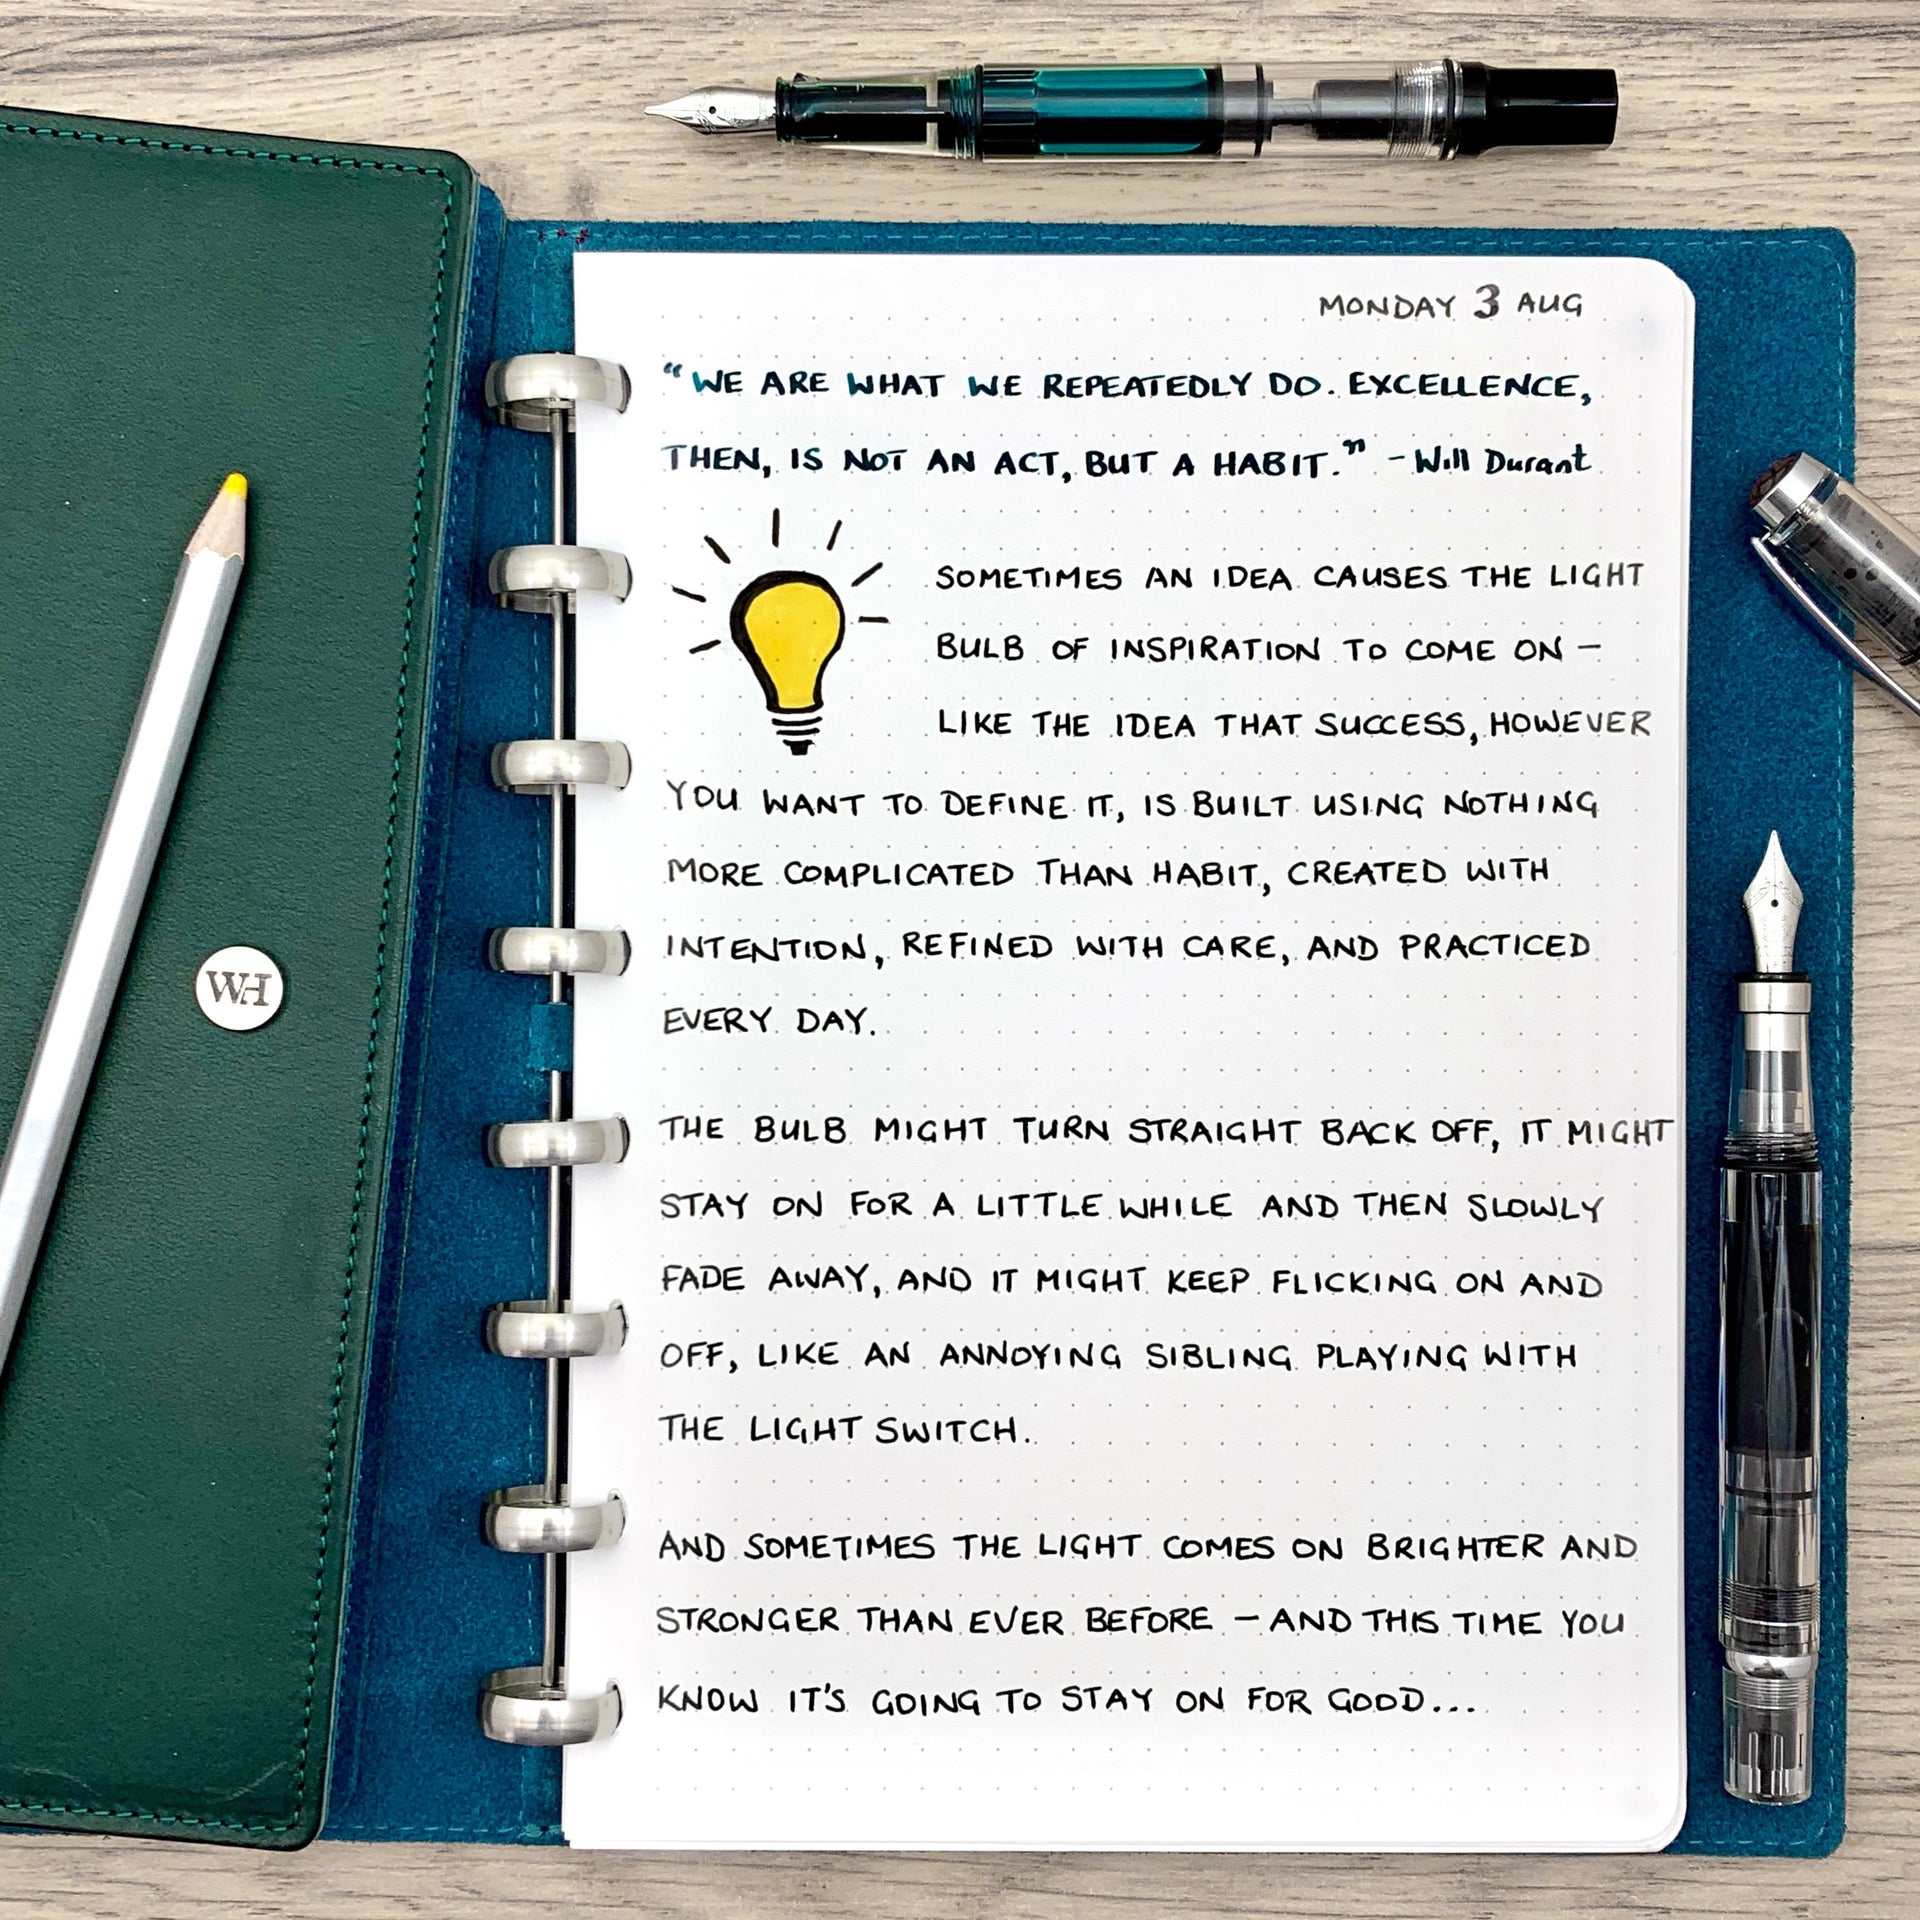 MONDAY 3 AUG
"WE ARE WHAT WE REPEATEDLY DO. EXCELLENCE,
THEN, IS NOT AN ACT, BUT A HABIT." - Will Durant
SOMETIMES AN IDEA CAUSES THE LIGHT
BULB OF INSPIRATION TO COME ON –
LIKE THE IDEA THAT SUCCESS, HOWEVER
YOU WANT TO DEFINE IT, IS BUILT USING NOTHING
MORE COMPLICATED THAN HABIT, CREATED WITH
INTENTION, REFINED WITH CARE, AND PRACTICED
EVERY DAY.
THE BULB MIGHT TURN STRAIGHT BACK OFF, IT MIGHT
STAY ON FOR A LITTLE WHILE AND THEN SLOWLY
FADE AWAY, AND IT MIGHT KEEP FLICKING ON AND
OFF, LIKE AN ANNOYING SIBLING PLAYING WITH
THE LIGHT SWITCH.
AND SOMETIMES THE LIGHT COMES ON BRIGHTER AND
STRONGER THAN EVER BEFORE – AND THIS TIME YOU
KNOW IT'S GOING TO STAY ON FOR GOOD...
WH